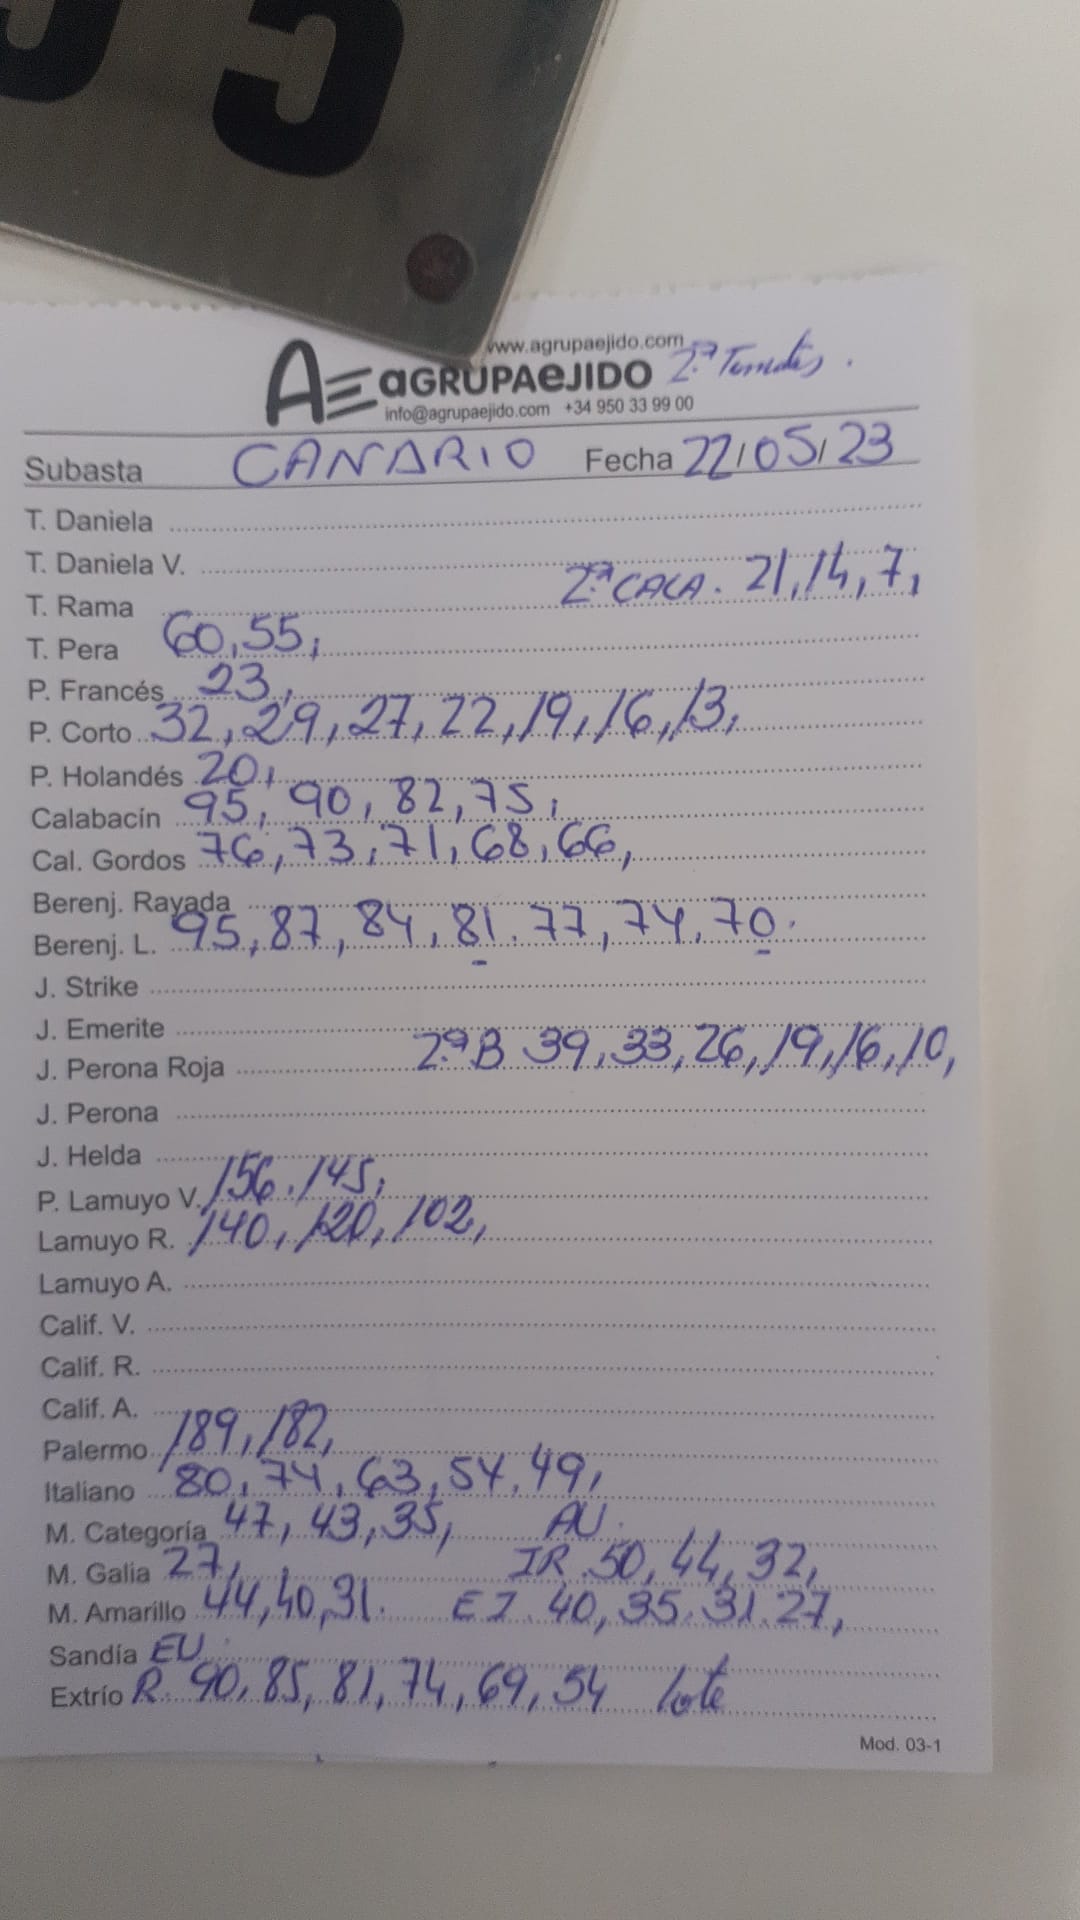 55
www.agrupaejido.com
AE aGRUPAeJIDO 2.ª
info@agrupaejido.com +34 950 33 99 00
Subasta CANARIO Fecha 22/05/23
T. Daniela
T. Daniela V.
2.ª CALA. 21, 14, 7,
T. Rama
T. Pera 60, 55,
P. Francés 23,
P. Corto 32, 29, 27, 22, 19, 16, 13,
P. Holandés 20,
Calabacín 95, 90, 82, 75,
Cal. Gordos 76, 73, 71, 68, 66,
Berenj. Rayada
Berenj. L. 95, 87, 84, 81. 77, 74, 70.
J. Strike
J. Emerite
J. Perona Roja 2.ª B 39, 33, 26, 19, 16, 10,
J. Perona
J. Helda
P. Lamuyo V. 156. 145,
Lamuyo R. 140, 120, 102,
Lamuyo A.
Calif. V.
Calif. R.
Calif. A.
Palermo 189, 182,
Italiano 80, 74, 63, 54, 49,
M. Categoría 47, 43, 35, AU.
M. Galia 27, IR. 50, 44, 32,
M. Amarillo 44, 40, 31. EJ. 40, 35. 31. 27,
Sandía EU.
Extrío R. 90, 85, 81, 74, 69, 54 lote
Mod. 03-1